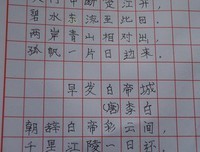 天门中断楚江开，
碧水东流至此回。
两岸青山相对出，
孤帆一片日边来。
早发白帝城
(唐)李白
朝辞白帝彩云间，
千里江陵一日还。